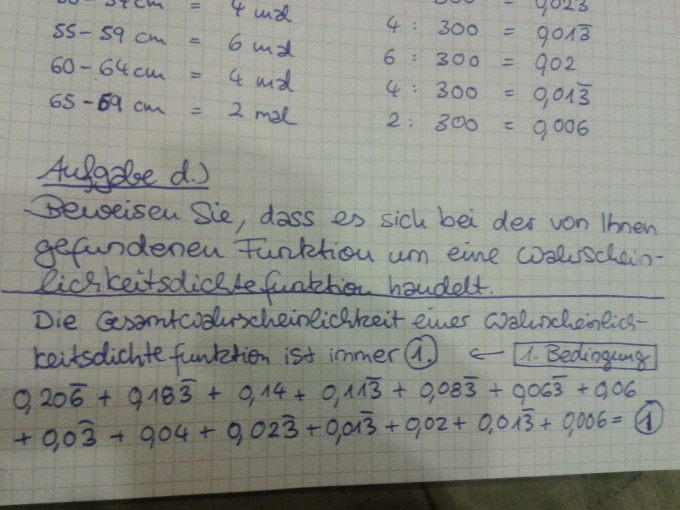 50-54 cm = 4 mal
: 300 = 0,023̅
55-59 cm = 6 mal
4 : 300 = 0,013̅
60-64 cm = 4 mal
6 : 300 = 0,02
65-69 cm = 2 mal
4 : 300 = 0,013̅
2 : 300 = 0,006
Aufgabe d.)
Beweisen Sie, dass es sich bei der von Ihnen
gefundenen Funktion um eine Wahrschein-
lichkeitsdichtefunktion handelt.
Die Gesamtwahrscheinlichkeit einer Wahrscheinlich-
keitsdichtefunktion ist immer 1. ← 1. Bedingung
0,206̅ + 0,183̅ + 0,14 + 0,113̅ + 0,083̅ + 0,063̅ + 0,06
+ 0,03̅ + 0,04 + 0,023̅ + 0,013̅ + 0,02 + 0,013̅ + 0,006 = 1